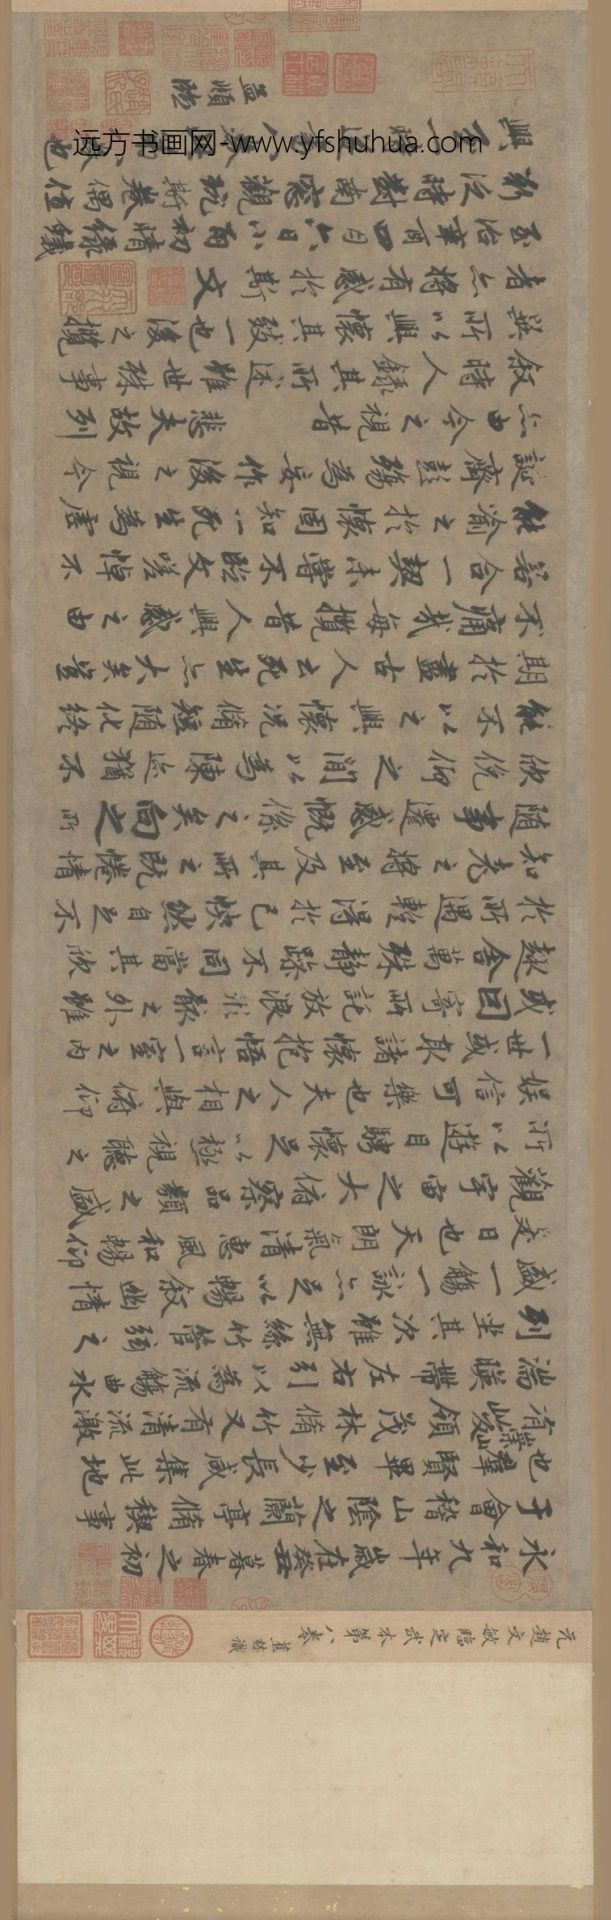 元趙文敏臨定武本第八卷 蕉林識
永和九年歲在癸丑暮春之初
于會稽山陰之蘭亭脩禊事
也羣賢畢至少長咸集此地
有崇山峻領茂林脩竹又有清流激
湍暎帶左右引以為流觴曲水
列坐其次雖無絲竹管弦之
盛一觴一詠亦足以暢敘幽情
是日也天朗氣清惠風和暢仰
觀宇宙之大俯察品類之盛
所以遊目騁懷足以極視聽之
娛信可樂也夫人之相與俯仰
一世或取諸懷抱悟言一室之內
或因寄所託放浪形骸之外雖
趣舍萬殊靜躁不同當其欣
於所遇暫得於己怏然自足不
知老之將至及其所之既惓情
隨事遷感慨係之矣向之所
欣俛仰之閒以為陳迹猶不
能不以之興懷況脩短隨化終
期於盡古人云死生亦大矣豈
不痛哉每攬昔人興感之由
若合一契未嘗不臨文嗟悼不
能喻之於懷固知一死生為虛
誕齊彭殤為妄作後之視今
亦由今之視昔悲夫故列
敘時人錄其所述雖世殊事
異所以興懷其致一也後之攬
者亦將有感於斯文
至治辛酉四月六日小雨初晴綠
新泛時對南窗觀玩斯卷偶值
興
孟頫臨
远方书画网-www.yfshuhua.com